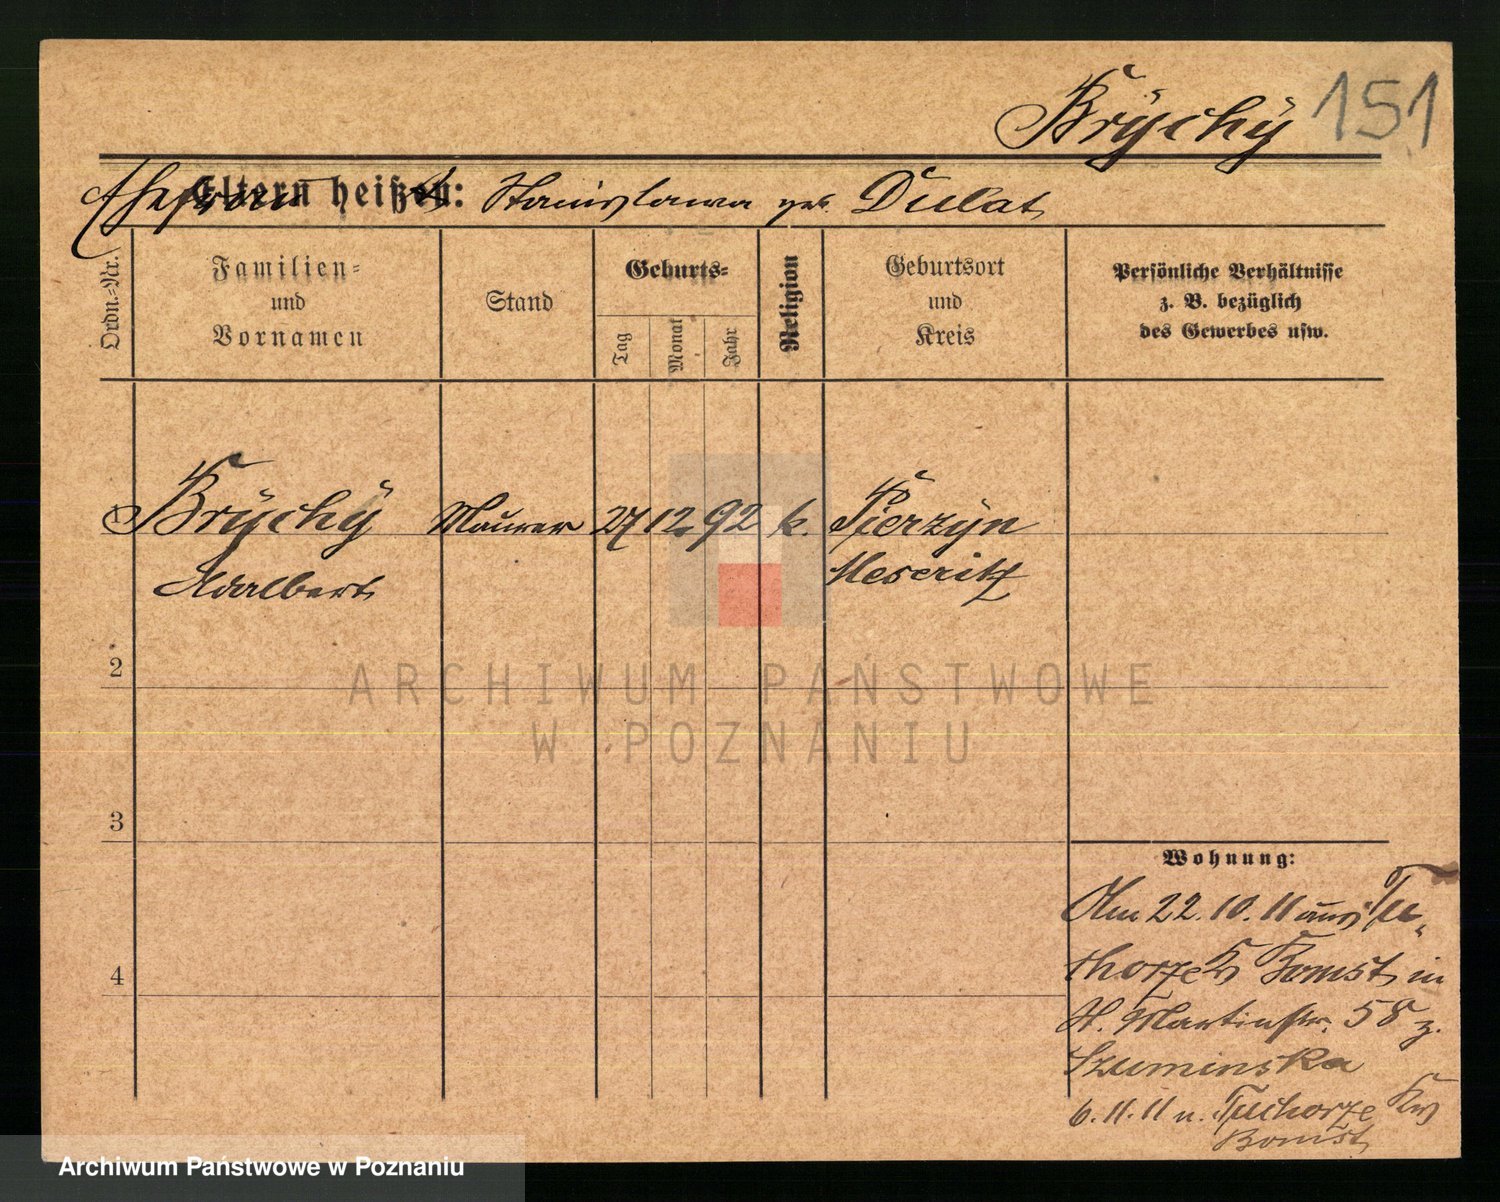 Brÿchÿ 151
Eltern heißen:
Ehefrau Stanislawa geb. Dulat
Ordn.-Nr.
Familien-
und
Vornamen
Stand
Geburts-
Tag
Monat
Jahr
Religion
Geburtsort
und
Kreis
Persönliche Verhältnisse
z. B. bezüglich
des Gewerbes usw.
1 Brÿchÿ Maurer 27 12 92 k.
Adalbert Meseritz
2
3
4
Wohnung:
Am 22.10.11 aus Tu-
chorze Kr Bomst in
St. Martinstr. 58 z.
Szuminska
6.11.11 n. Tuchorze Kr
Bomst
ARCHIWUM PAŃSTWOWE
W POZNANIU
Archiwum Państwowe w Poznaniu